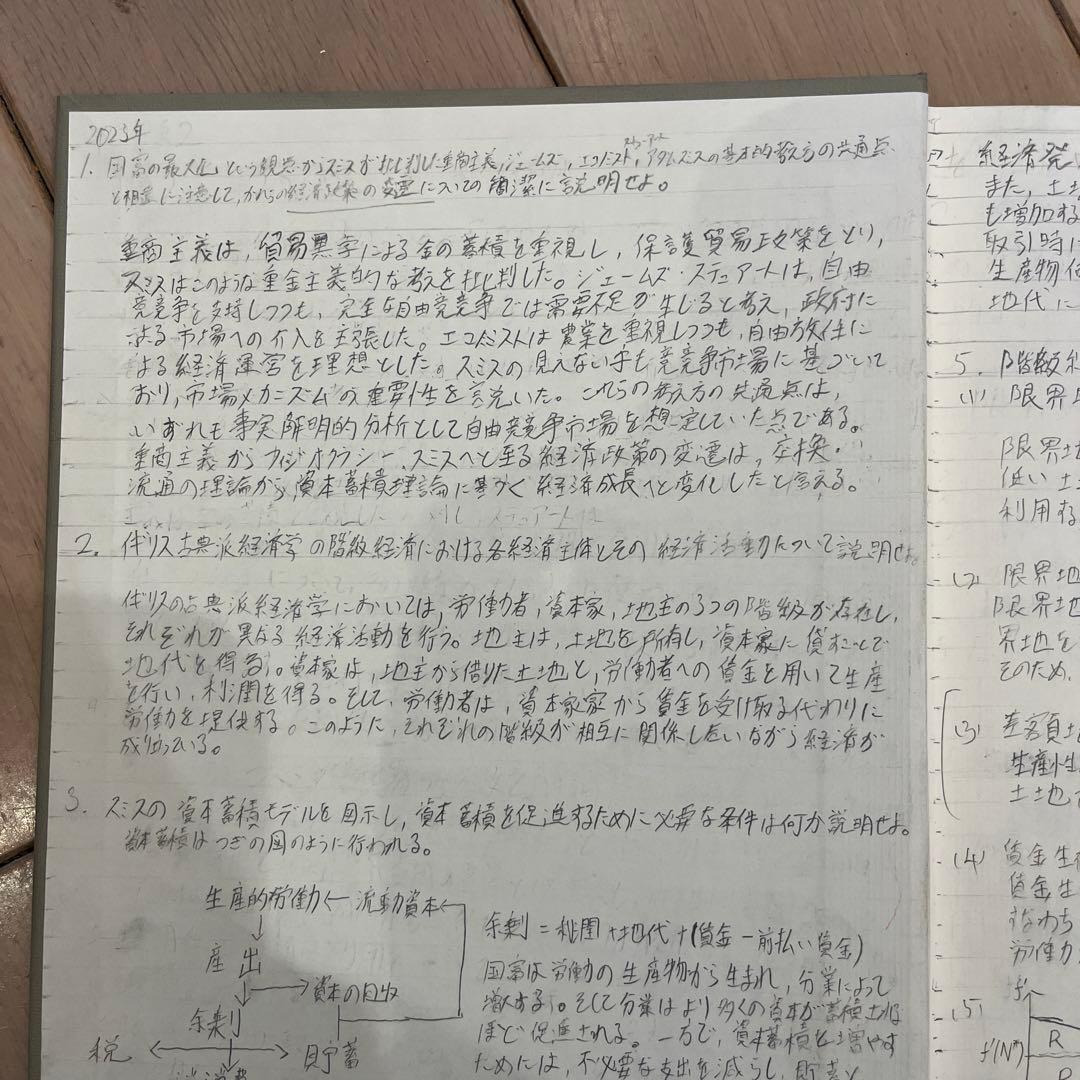 2023年
1. 国富の最大化という観点からスミスが批判した重商主義,ジェームズ,エコノミスト,アダムスミスの基本的考え方の共通点
ステュアート
と相違に注意して,かれらの経済政策の変遷についての簡潔に説明せよ。
重商主義は,貿易黒字による金の蓄積を重視し,保護貿易政策をとり,
スミスはこのような重金主義的な考えを批判した。ジェームズ・ステュアートは,自由
競争を支持しつつも,完全な自由競争では需要不足が生じると考え,政府に
よる市場への介入を主張した。エコノミストは農業を重視しつつも,自由放任に
よる経済運営を理想とした。スミスの見えない手も競争市場に基づいて
おり,市場メカニズムの重要性を説いた。これらの考え方の共通点は,
いずれも事実解明的分析として自由競争市場を想定していた点である。
重商主義からフィジオクラシー,スミスへと至る経済政策の変遷は,交換・
流通の理論から資本蓄積理論に基づく経済成長へと変化したと言える。
2. イギリス古典派経済学の階級経済における各経済主体とその経済活動について説明せよ
イギリスの古典派経済学においては,労働者,資本家,地主の3つの階級が存在し,
それぞれが異なる経済活動を行う。地主は,土地を所有し,資本家に貸すことで
地代を得る。資本家は,地主から借りた土地と,労働者への賃金を用いて生産
を行い,利潤を得る。そして,労働者は,資本家から賃金を受け取る代わりに
労働力を提供する。このように,それぞれの階級が相互に関係しあいながら経済が
成り立っている。
3. スミスの資本蓄積モデルを図示し,資本蓄積を促進するために必要な条件は何か説明せよ。
資本蓄積はつぎの図のように行われる。
生産的労働←流動資本
産出
→資本の回収
余剰
税
貯蓄
余剰=利潤+地代+(賃金-前払い賃金)
国富は労働の生産物から生まれ,分業によって
増大する。そして分業はより多くの資本が蓄積される
ほど促進される。一方で,資本蓄積を増やす
ためには,不必要な支出を減らし,貯蓄
経済発
また,土土
も増加する
取引時に
生産物
地代に
5. 階級
(1) 限界
限界土
低い土
利用す
(2) 限界地
限界地
界地を
そのため,
(3) 差額土
生産性
土地
(4) 賃金生
賃金生
すなわち
労働力
(5)
f'(N*)
R